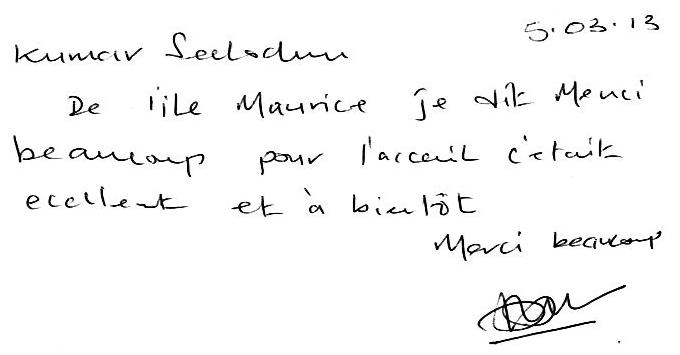 5.03.13
Kumar
De l'ile Maurice je dit Merci
beaucoup pour l'acceuil c'etait
ecellent et à bientôt
Merci beaucoup